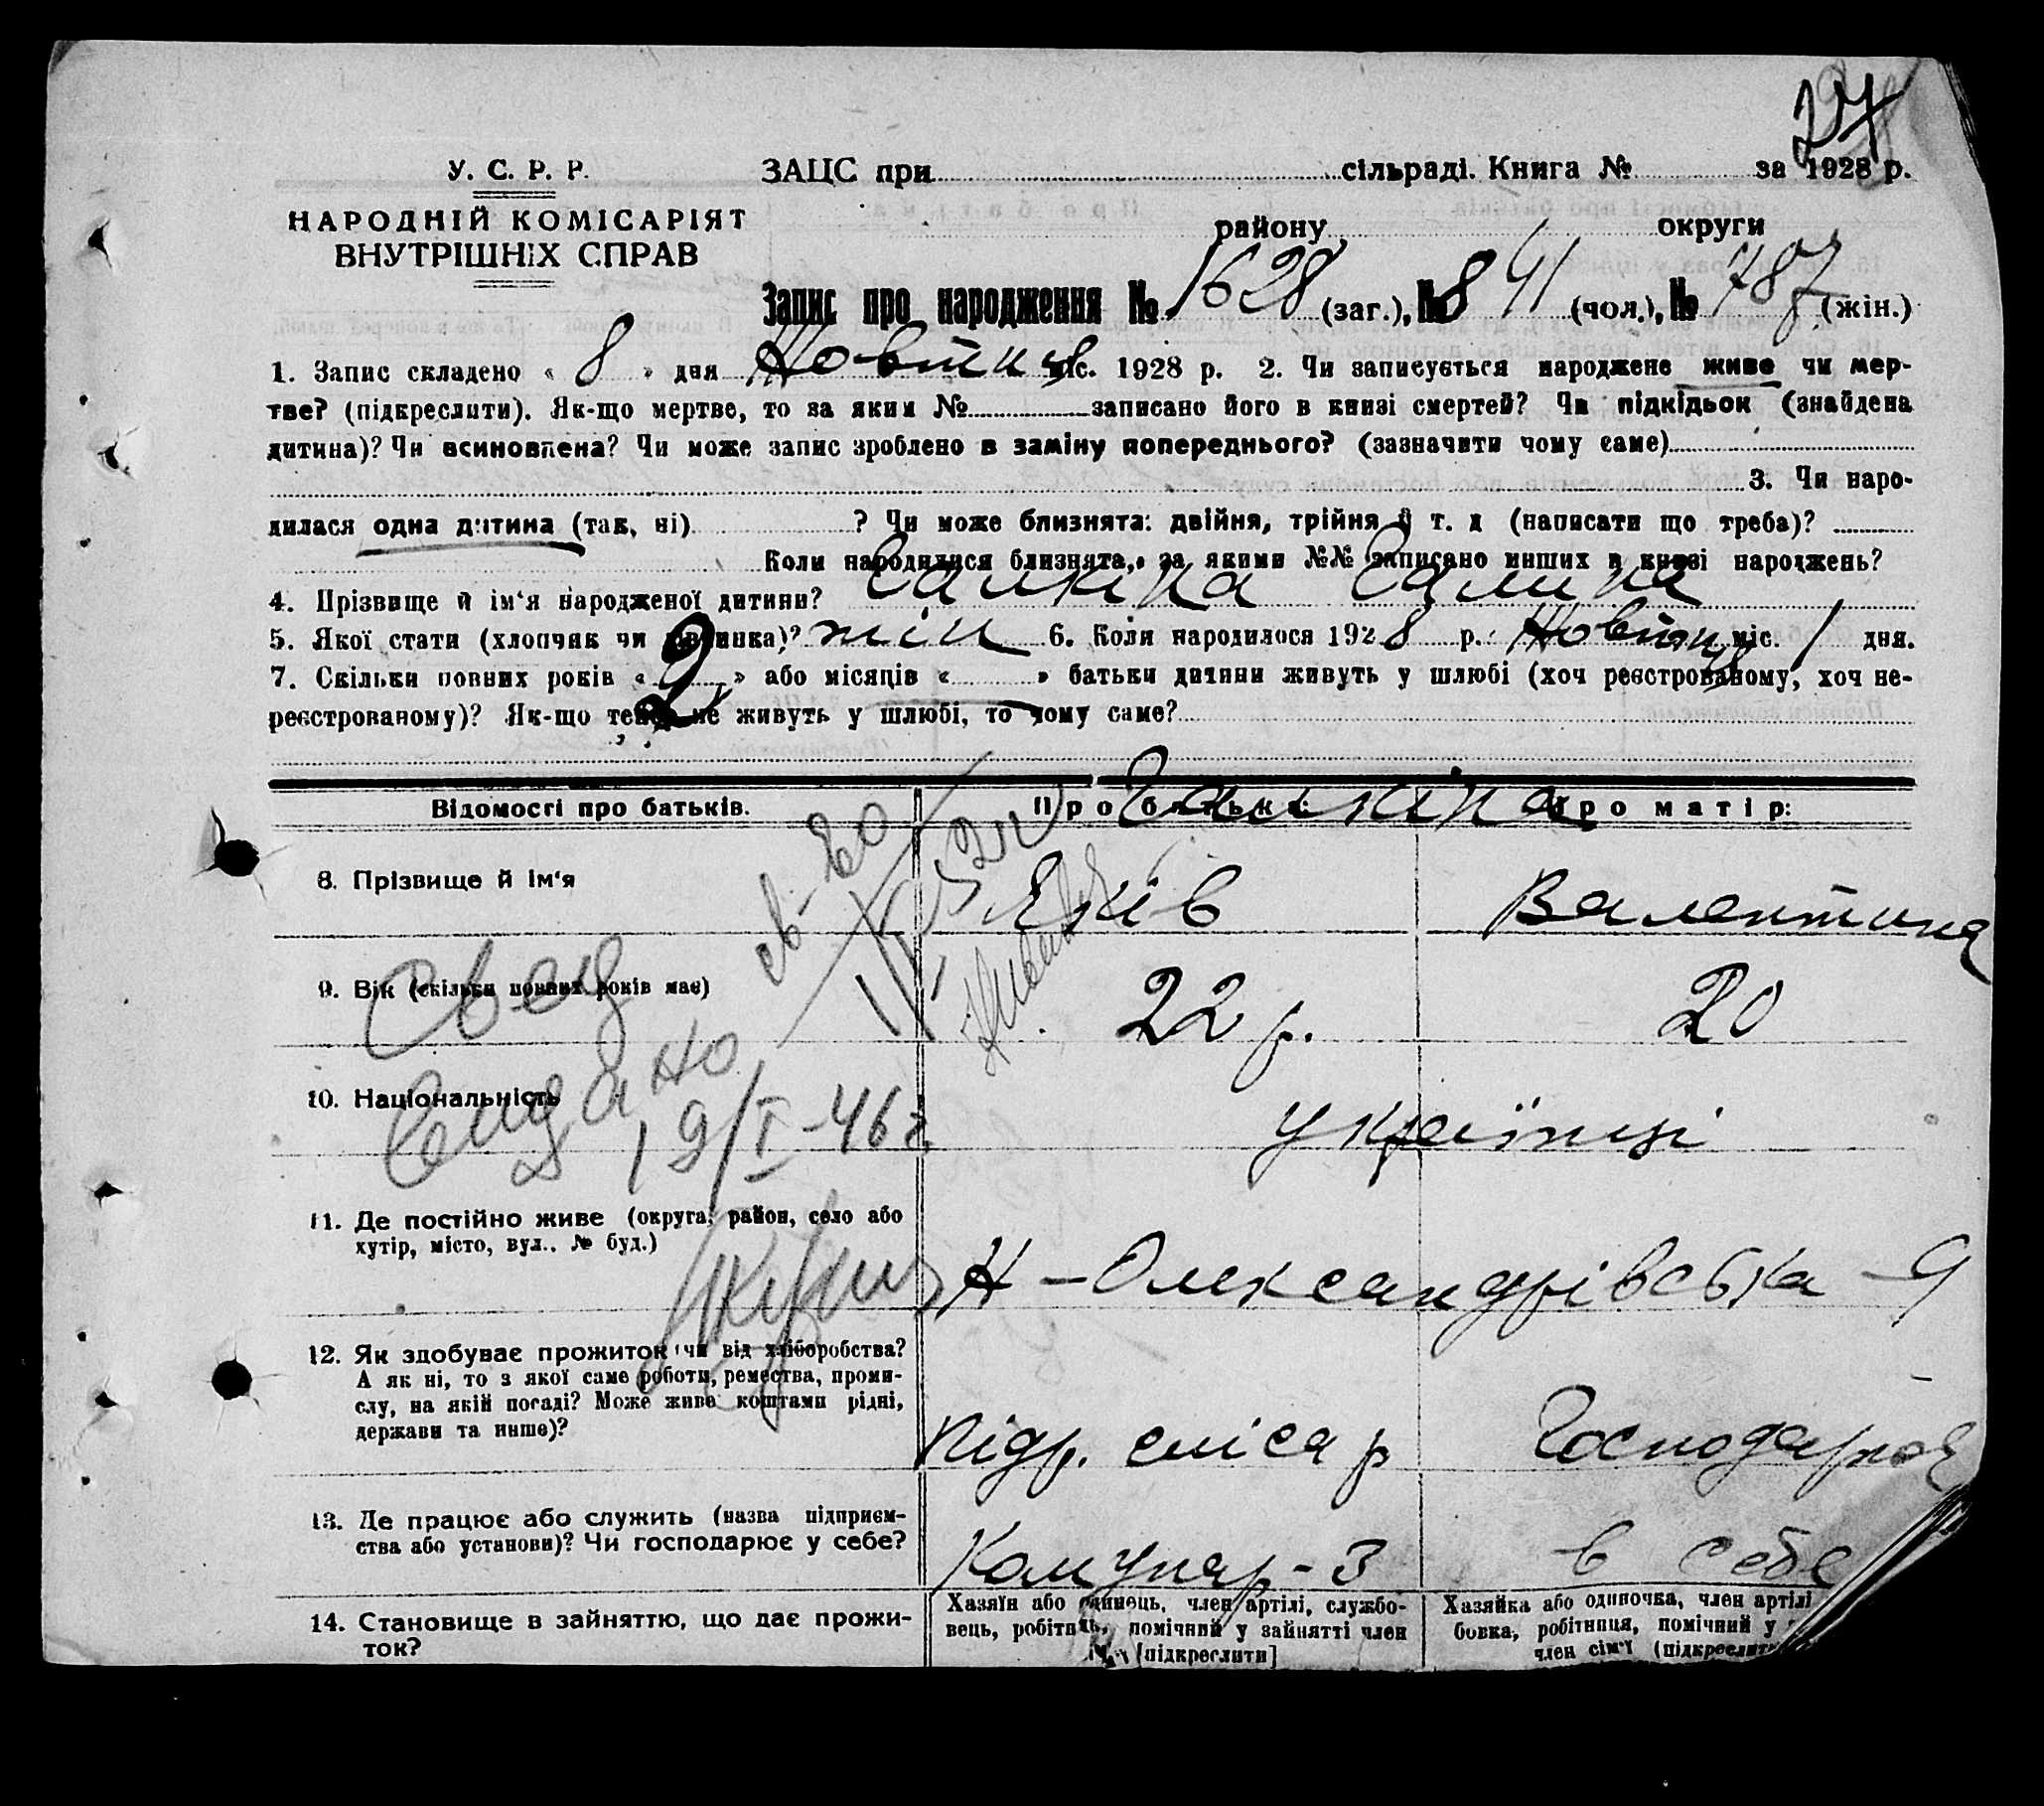 27
У. С. Р. Р.
ЗАЦС при сільраді. Книга № за 1928 р.
НАРОДНІЙ КОМІСАРІЯТ
ВНУТРІШНІХ СПРАВ
району округи
Запис про народження № 1628 (заг.), № 841 (чол.), № 787 (жін.)
1. Запис складено « 8 » дня Жовтня міс. 1928 р. 2. Чи записується народжене живе чи мер-
тве? (підкреслити). Як-що мертве, то за яким № записано його в книзі смертей? Чи підкідьок (знайдена
дитина)? Чи всиновлена? Чи може запис зроблено в заміну попереднього? (зазначити чому саме)
3. Чи наро-
дилася одна дитина (так, ні) ? Чи може близнята: двійня, трійня й т. д (написати що треба)?
Коли народилися близнята, за якими №№ записано инших в книзі народжень?
4. Прізвище й ім‘я народженої дитини? Галина
5. Якої стати (хлопчик чи дівчинка)? жін 6. Коли народилося 1928 р. Жовтня міс. 1 дня.
7. Скільки повних років « 2 » або місяців « » батьки дитини живуть у шлюбі (хоч реєстрованому, хоч не-
реєстрованому)? Як-що тепер не живуть у шлюбі, то чому саме?
Відомості про батьків. Про батька: Про матір:
8. Прізвище й ім‘я Яків Валентина
9. Вік (скільки повних років має) 22 р. 20
10. Національність українці
Свед
видано
19/I-46 г
11. Де постійно живе (округа, район, село або
хутір, місто, вул.. № буд.)
Н-Олександрівська-9
12. Як здобуває прожиток чи від хліборобства?
А як ні, то з якої саме роботи, ремества, проми-
слу, на якій посаді? Може живе коштами рідні,
держави та инше)?
підр. слісар Господарює
13. Де працює або служить (назва підприєм-
ства або установи)? Чи господарює у себе?
Комунар-3 в себе
14. Становище в зайняттю, що дає прожи-
ток?
Хазяїн або одинець, член артілі, службо-
вець, робітник, помічний у зайнятті член
[підкреслити]
Хазяйка або одиночка, член артілі
бовка, робітниця, помічний у
член сім‘ї (підкреслити